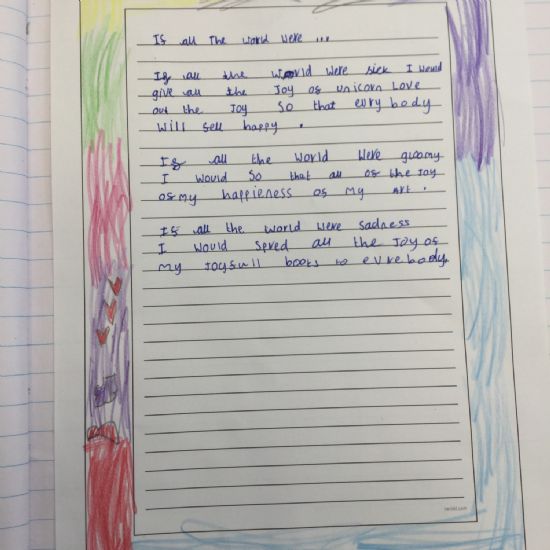 If all The world were ...
If all the world were sick I would
give all the Joy of unicorn Love
out the Joy so that evry body
will feel happy .
If all the world were gloomy
I would so that all of the Joy
of my happieness of my Art .
If all the world were sadness
I would spred all the Joy of
my Joyfull books to evrebody.
twinkl.com